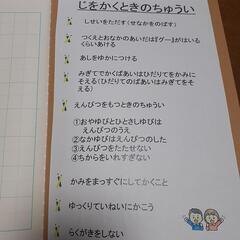 じをかくときのちゅうい
しせいをただす(せなかをのばす)
つくえとおなかのあいだは『グー』がはいる
くらいあける
あしをゆかにつける
みぎてでかくばあいはひだりてをかみに
そえる(ひだりてのばあいはみぎてをそ
える)
えんぴつをもつときのちゅうい
①おやゆびとひとしゆびは
えんぴつのうえ
②なかゆびはえんぴつのした
③えんぴつをたたせない
④ちからをいれすぎない
かみをまっすぐにしてかくこと
ゆっくりていねいにかこう
らくがきをしない